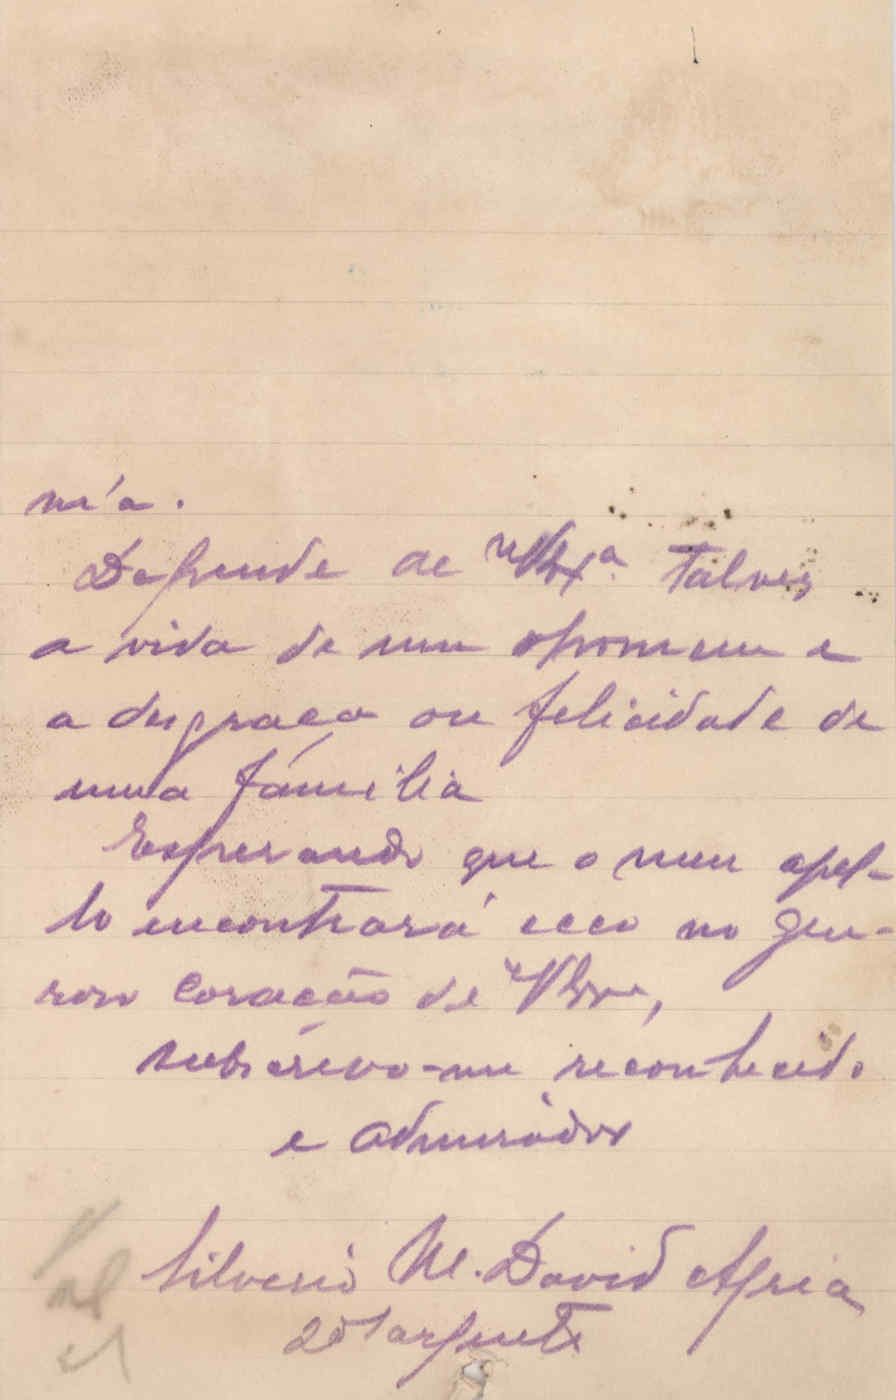 nia.
Depende de V. Exa. talvez
a vida de um homem e
a desgraça ou felicidade de
uma familia
Esperando que o meu apel-
lo encontrará ecco no gene-
roso coração de V. Exa,
subscrevo-me reconhecido
e admirador
Silverio M. David
2º Sargento